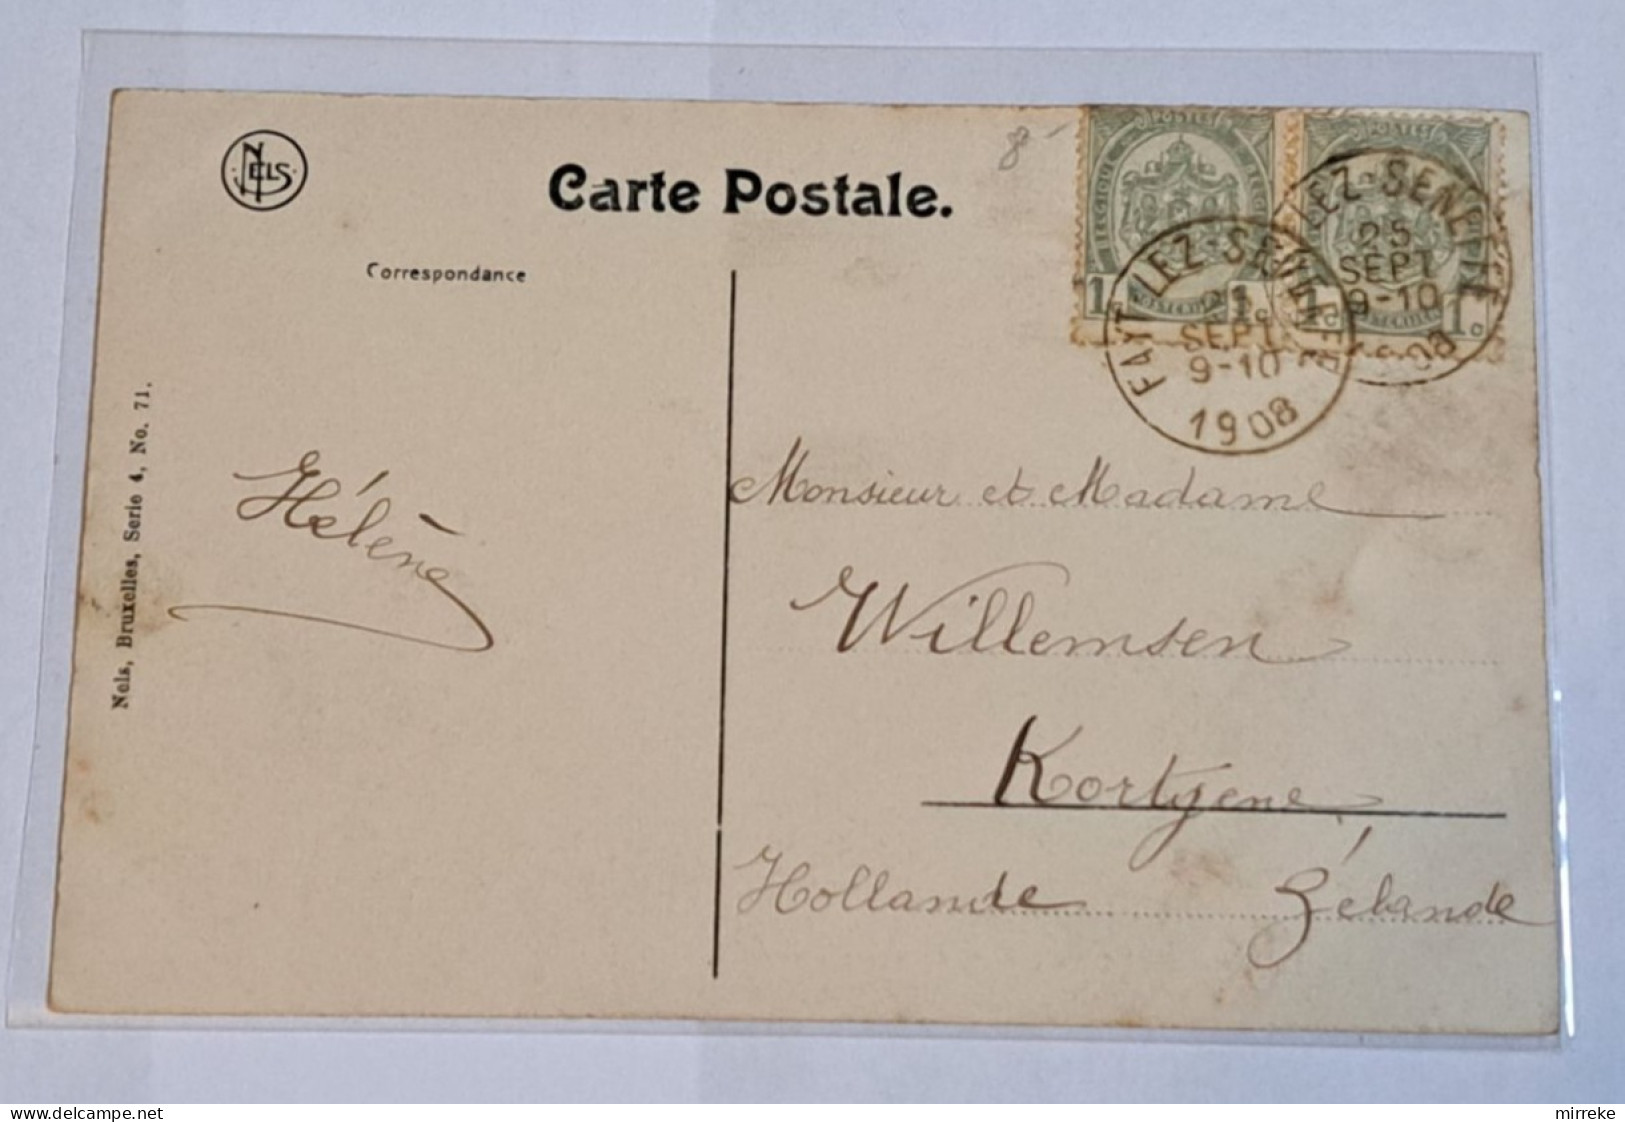 NELS
Carte Postale.
8-
Correspondance
POSTES
1c 1c
POSTES
1c 1c
LEZ-SENEFFE
25
SEPT
9-10
1908
FAYT LEZ-SENEFFE
25
SEPT
9-10
1908
Nels, Bruxelles, Serie 4, No. 71.
Hélène
Monsieur et Madame
Willemsen
Kortgene
Hollande Zélande
delcampe.net
mirreke